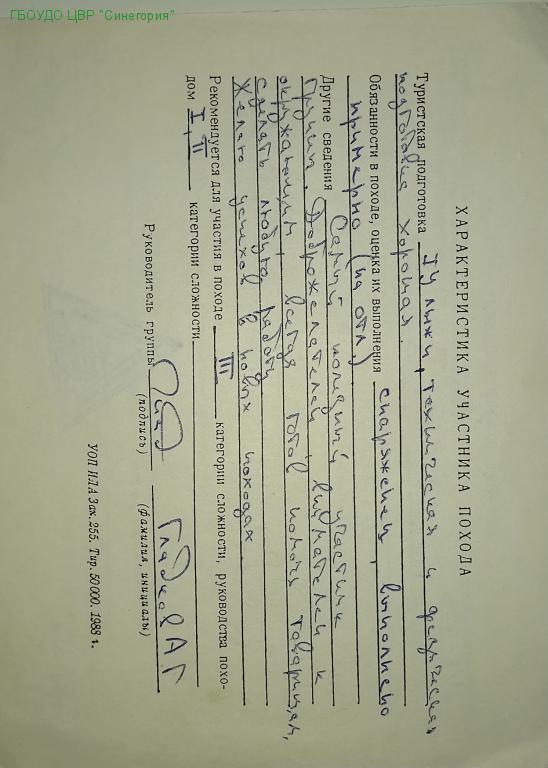 ГБОУДО ЦВР "Синегория"
ХАРАКТЕРИСТИКА УЧАСТНИКА ПОХОДА
Туристская подготовка IУ лыжи, техническая и физическая
подготовка хорошая.
Обязанности в походе, оценка их выполнения снаряженец, выполнено
примерно (на отл.)
Другие сведения Самый полезный участник
группы. Доброжелателен, внимателен к
окружающим, всегда готов помочь товарищам,
сделать любую работу
Желаю успехов в новых походах.
Рекомендуется для участия в походе III категории сложности, руководства похо-
дом I, II категории сложности
Руководитель группы Гладков А Г
(подпись) (фамилия, инициалы)
УОП ИЛА Зак. 255. Тир. 50 000. 1988 г.